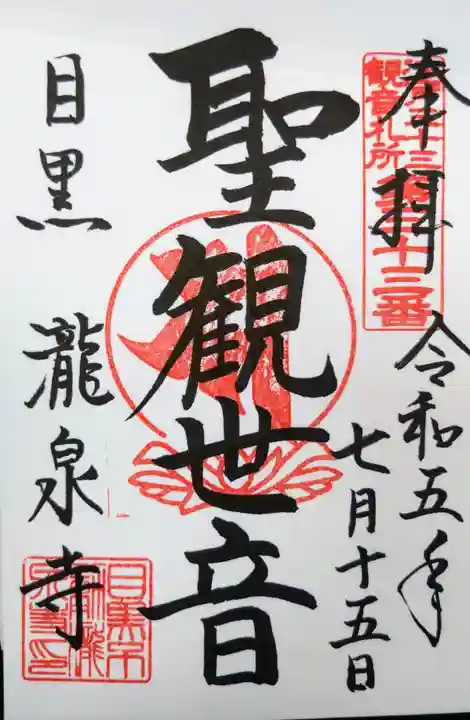 奉拝
令和五年
七月十五日
聖観世音
目黒 瀧泉寺
観音札所
三十三番